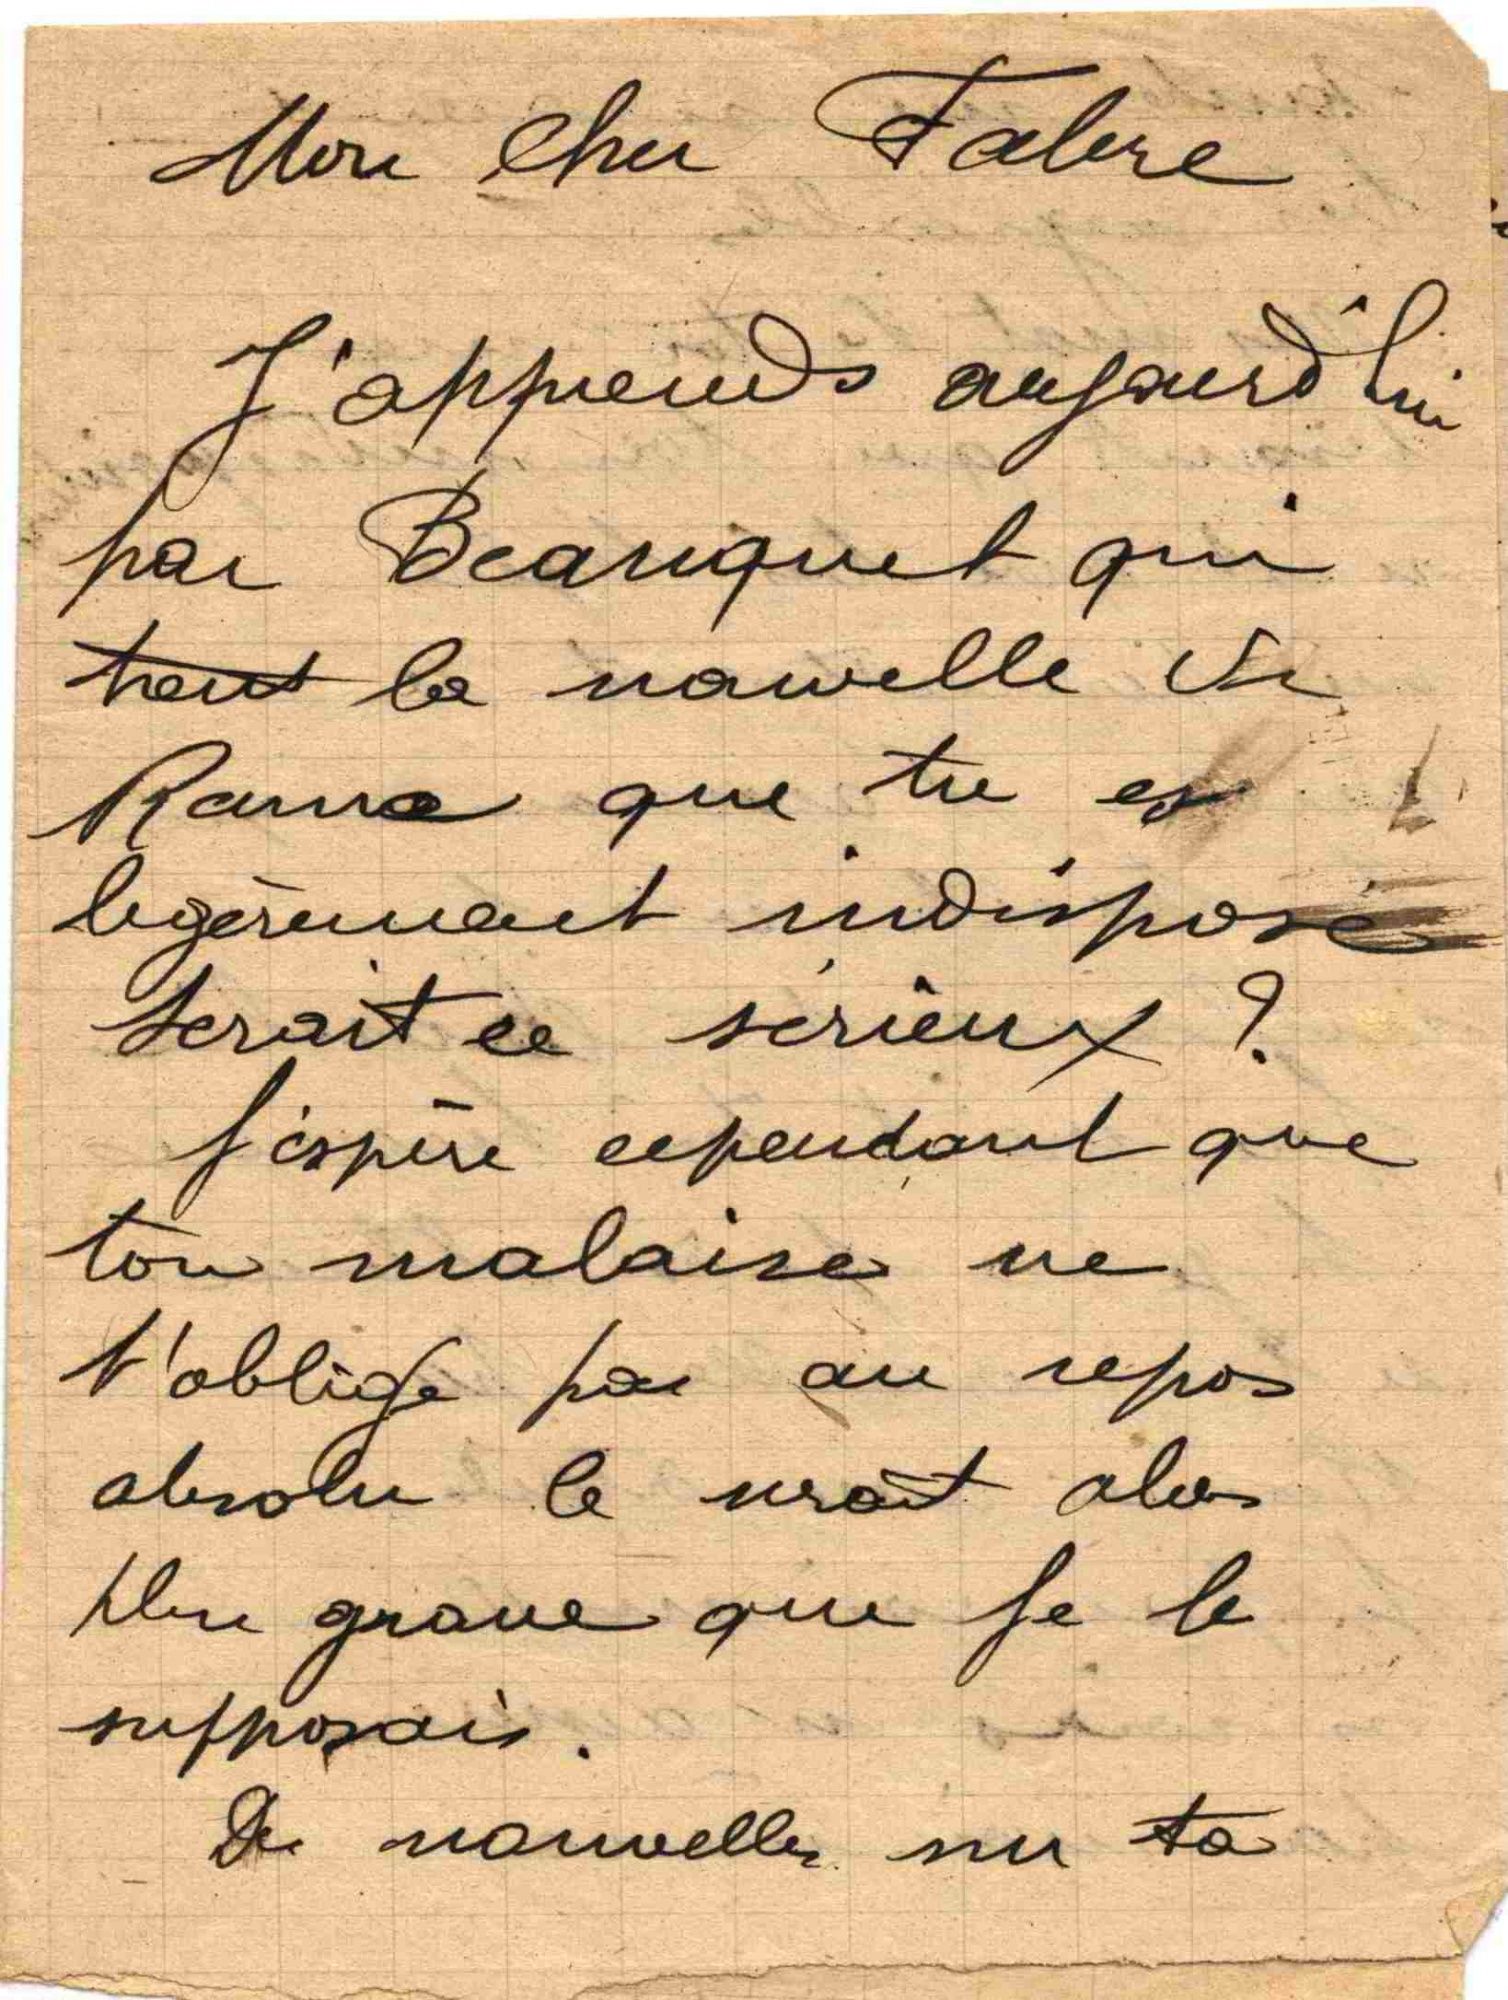 Mon cher Fabre
J'apprends aujourd'hui
par Beauquet qui
tient la nouvelle de
Rama que tu es
légèrement indisposé
serait ce sérieux ?
J'espère cependant que
ton malaise ne
t'oblige pas au repos
absolu ce serait alors
plus grave que je le
supposais.
De nouvelles sur ta